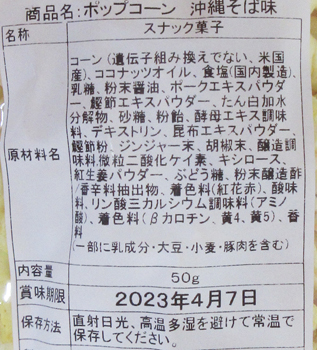 商品名:ポップコーン 沖縄そば味
名称 スナック菓子
コーン(遺伝子組み換えでない、米国
産)、ココナッツオイル、食塩(国内製造)、
乳糖、粉末醤油、ポークエキスパウダ
ー、鰹節エキスパウダー、たん白加水
分解物、砂糖、粉飴、酵母エキス調味
料、デキストリン、昆布エキスパウダー、
鰹節粉、ジンジャー末、胡椒末、醸造調
原材料名 味料,微粒二酸化ケイ素、キシロース、
紅生姜パウダー、ぶどう糖、粉末醸造酢
/香辛料抽出物、着色料(紅花赤)、酸味
料、リン酸三カルシウム調味料(アミノ
酸)、着色料(βカロチン、黄4、黄5)、香
料
(一部に乳成分・大豆・小麦・豚肉を含む)
内容量 50g
賞味期限 2023年4月7日
保存方法 直射日光、高温多湿を避けて常温で
保存してください。